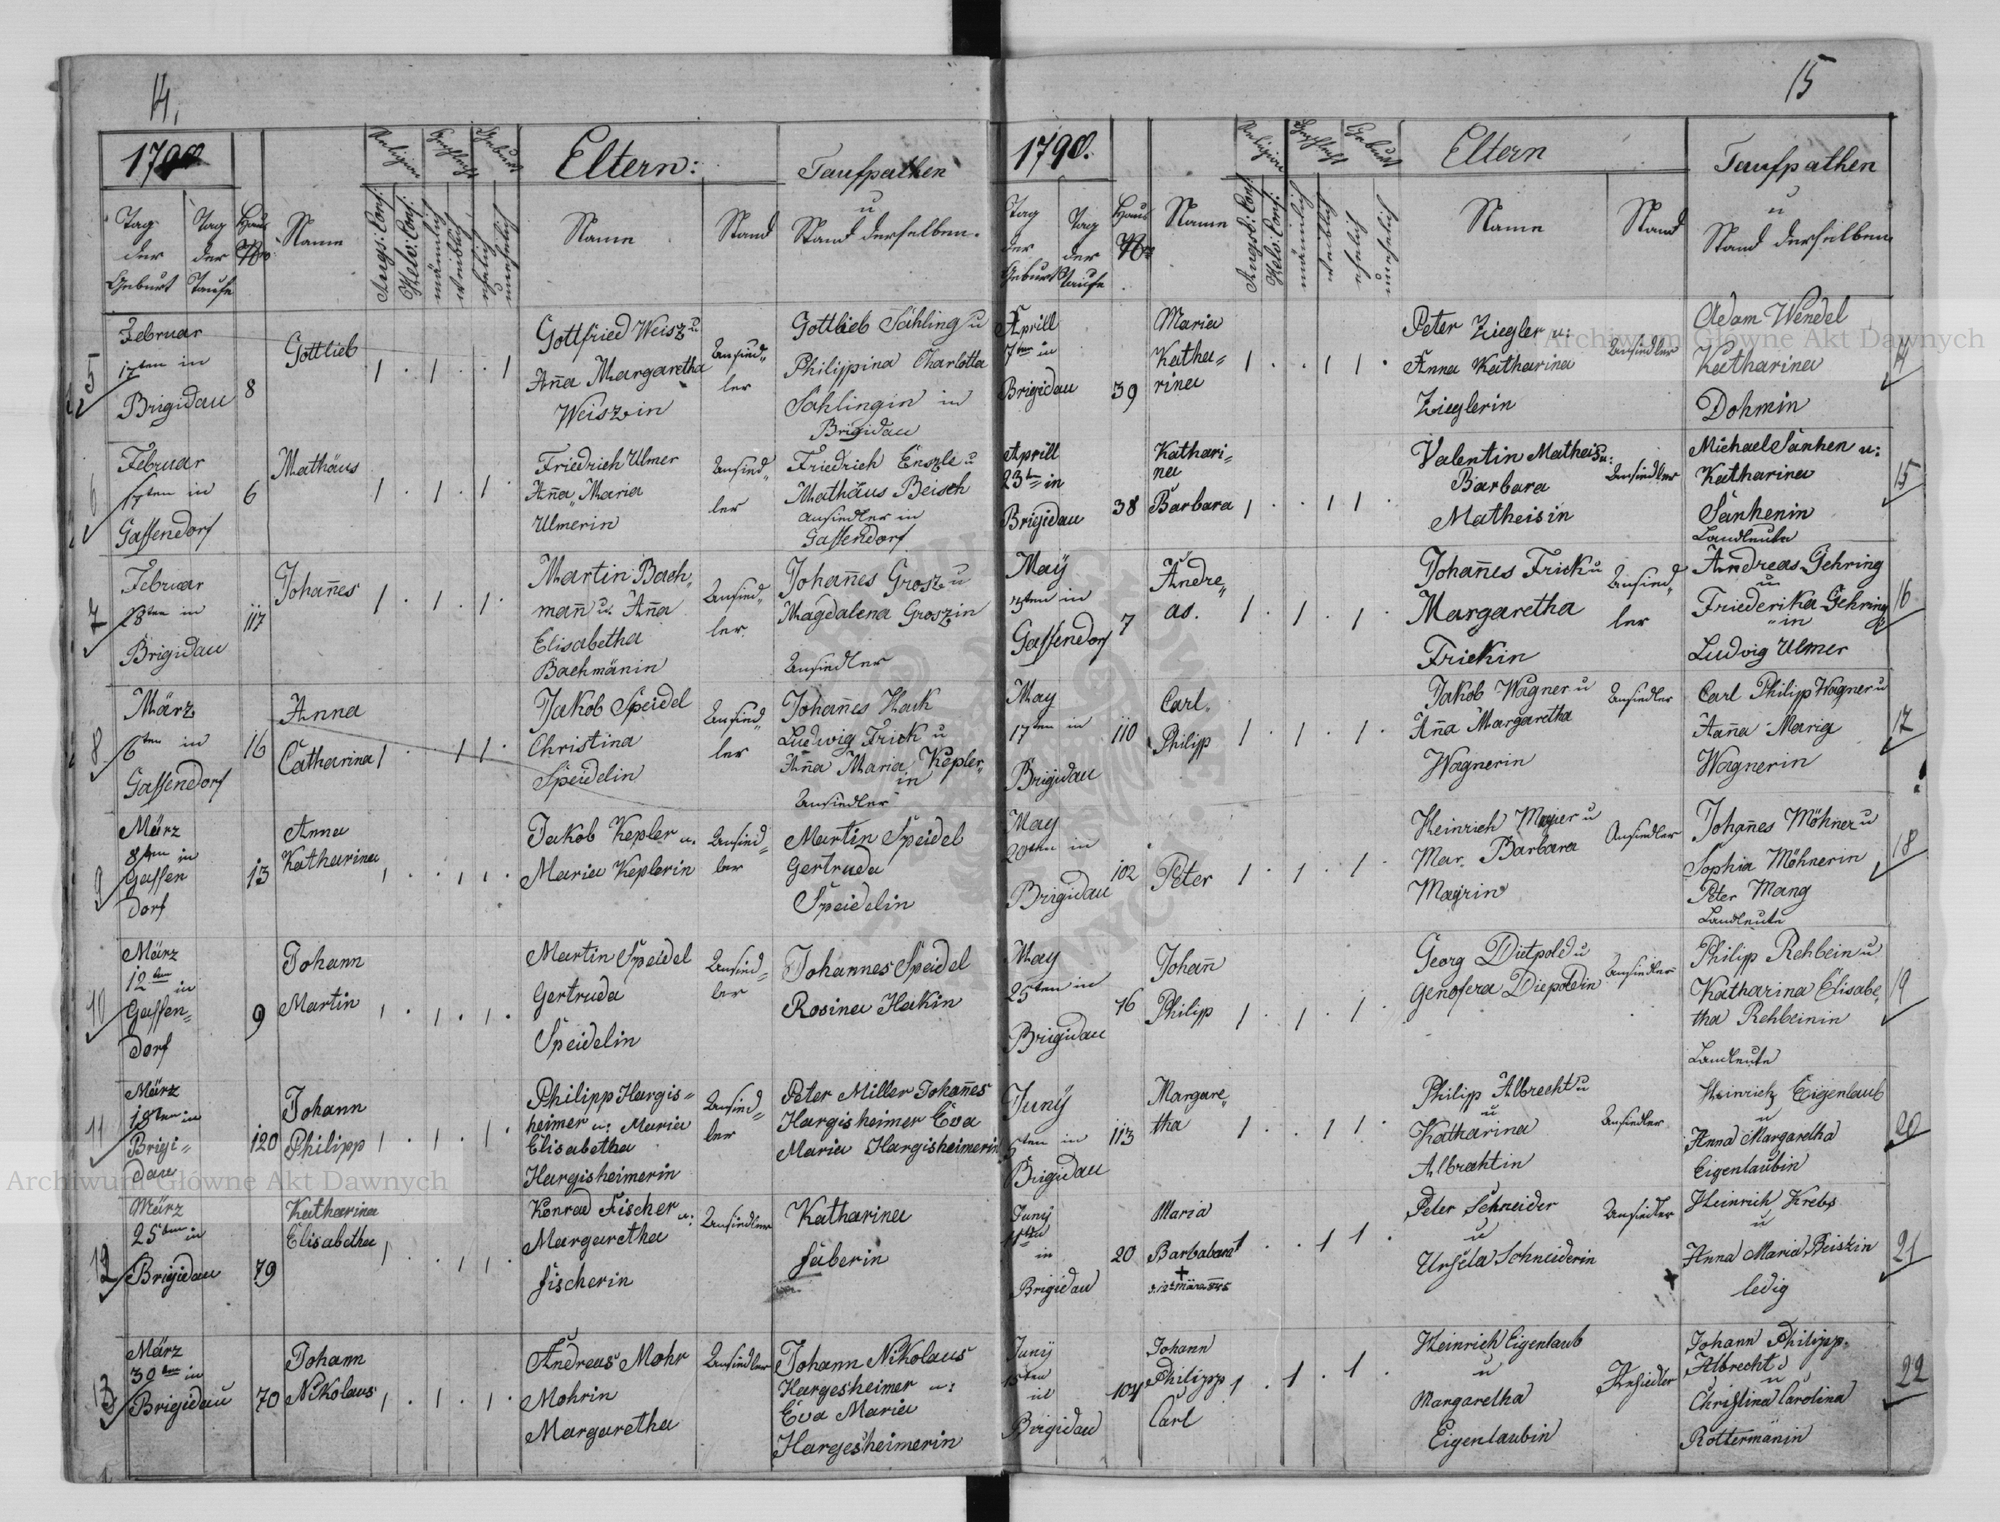 14.
1790.
Religion
Geschlecht
Geburt
Eltern:
Taufpathen
u
Stand derselben.
Tag
der
Geburt
Tag
der
Taufe
Haus
Nro.
Name
Augs: Conf.
Helv: Conf.
männlich
weiblich
ehelich
unehelich
Name
Stand
5
Februar
17ten in
Brigidau
8
Gottlieb
1 . 1 . . 1
Gottfried Weisz u
Anna Margaretha
Weiszin
Ansied-
ler
Gottlieb Sahling u
Philippina Charlotta
Sahlingin in
Brigidau
6
Februar
17ten in
Gassendorf
6
Mathäus
1 . 1 . 1 .
Friedrich Ulmer
Anna Maria
Ulmerin
Ansied-
ler
Friedrich Enszle u
Mathäus Beisch
Ansiedler in
Gassendorf
7
Februar
28ten in
Brigidau
117
Johannes
1 . 1 . 1 .
Martin Bach-
mann u. Anna
Elisabetha
Bachmänin
Ansied-
ler
Johannes Grosz u
Magdalena Groszin
Ansiedler
8
März
6ten in
Gassendorf
16
Anna
Catharina
1 . . 1 1 .
Jakob Speidel
Christina
Speidelin
Ansied-
ler
Johannes Hack
Ludwig Frick u
Anna Maria Kepler-
in
Ansiedler
9
März
8ten in
Gassen
dorf
13
Anna
Katharina
1 . . 1 1 .
Jakob Kepler u.
Maria Keplerin
Ansied-
ler
Martin Speidel
Gertruda
Speidelin
10
März
12ten in
Gassen-
dorf
9
Johann
Martin
1 . 1 . 1 .
Martin Speidel
Gertruda
Speidelin
Ansied-
ler
Johannes Speidel
Rosina Hakin
11
März
18ten in
Brigi-
dau
120
Johann
Philipp
1 . 1 . 1 .
Philipp Hargis-
heimer u: Maria
Elisabetha
Hargisheimerin
Ansied-
ler
Peter Miller Johannes
Hargisheimer Eva
Maria Hargisheimerin
12
März
25ten in
Brigidau
79
Katharina
Elisabetha
1 . . 1 1
Konrad Fischer u:
Margaretha
Fischerin
Ansiedler
Katharina
Faberin
13
März
30ten in
Brigidau
70
Johann
Nikolaus
1 . 1 . 1 .
Andreas Mohr
Mohrin
Margaretha
Ansiedler
Johann Nikolaus
Hargesheimer u:
Eva Maria
Hargesheimerin
15
1790.
Religion
Geschlecht
Geburt
Eltern
Taufpathen
u
Stand derselben
Tag
der
Geburt
Tag
der
Taufe
Haus
Nro
Name
Augsb: Conf.
Helv: Conf.
männlich
weiblich
ehelich
unehelich
Name
Stand
Aprill
7ten in
Brigidau
39
Maria
Katha-
rina
1 . . 1 1 .
Peter Ziegler u:
Anna Katharina
Zieglerin
Ansiedler
Adam Wendel
Katharina
Dohmin
14
Aprill
23ten in
Brigidau
38
Kathari-
na
Barbara
1 . . 1 1 .
Valentin Matheis u:
Barbara
Matheisin
Ansiedler
Michael Sanhen u:
Katharina
Sanhenin
Landleute
15
May
in
Gassendorf
7
Andre-
as.
1 . 1 . 1 .
Johannes Frick u
Margaretha
Frickin
Ansied-
ler
Andreas Gehring
u:
Friederika Gehring-
in
Ludwig Ulmer
16
May
17ten in
Brigidau
110
Carl.
Philipp
1 . 1 . 1 .
Jakob Wagner u
Anna Margaretha
Wagnerin
Ansiedler
Carl Philipp Wagner u
Anna Maria
Wagnerin
17
May
20ten in
Brigidau
102
Peter
1 . 1 . 1 .
Heinrich Mayer u
Mar. Barbara
Mayrin
Ansiedler
Johannes Möhner u
Sophia Möhnerin
Peter Mang
Landleute
18
May
25ten in
Brigidau
76
Johann
Philipp
1 . 1 . 1 .
Georg Dietpold u
Genofera Diepoldin
Ansiedler
Philipp Rehbein u
Katharina Elisabe-
tha Rehbeinin
Landleute
19
Juny
5ten in
Brigidau
113
Margare-
tha
1 . . 1 1 .
Philipp Albrecht u
u
Katharina
Albrechtin
Ansiedler
Heinrich Eigenlaub
u
Anna Margaretha
Eigenlaubin
20
Juny
11ten
in
Brigidau
20
Maria
Barbabara
1 . . 1 1 .
Peter Schneider
u
Ursela Schneiderin
Ansiedler
Heinrich Krebs
u
Anna Maria Beiszin
ledig
21
Juny
15ten
in
Brigidau
104
Johann
Philipp
Carl
1 . 1 . 1 .
Heinrich Eigenlaub
u
Margaretha
Eigenlaubin
Ansiedler
Johann Philipp
Albrecht
u
Christina Carolina
Rottermänin
22
Archiwum Główne Akt Dawnych
Archiwum Główne Akt Dawnych